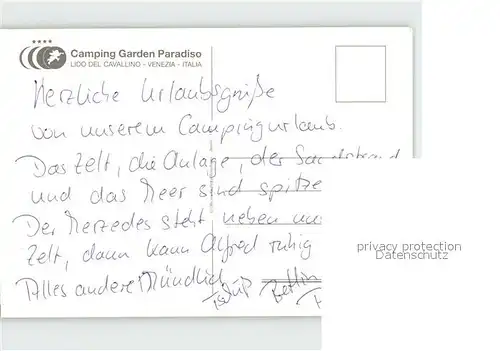 Camping Garden Paradiso
LIDO DEL CAVALLINO - VENEZIA - ITALIA
Herzliche Urlaubsgrüße
von unserem Campingurlaub.
Das Zelt, die Anlage, der Sandstrand
und das Meer sind spitze
Der Merzedes steht neben
Zelt, dann kann Alfred ruhig
Alles andere Mündlich
privacy protection
Datenschutz